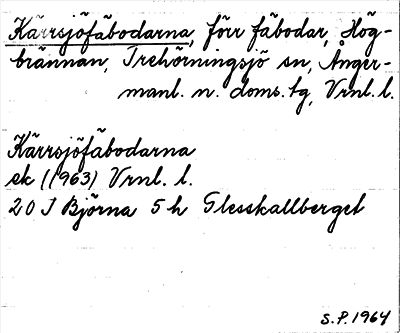 Kärrsjöfäbodarna, förr fäbodar, Hög-
brännan, Trehörningsjö sn, Ånger-
manl. n. doms. tg, Vrnl. l.
Kärrsjöfäbodarna
ek (1963) Vrnl. l.
20 J Björna 5 h Glesskallberget
S.P. 1964